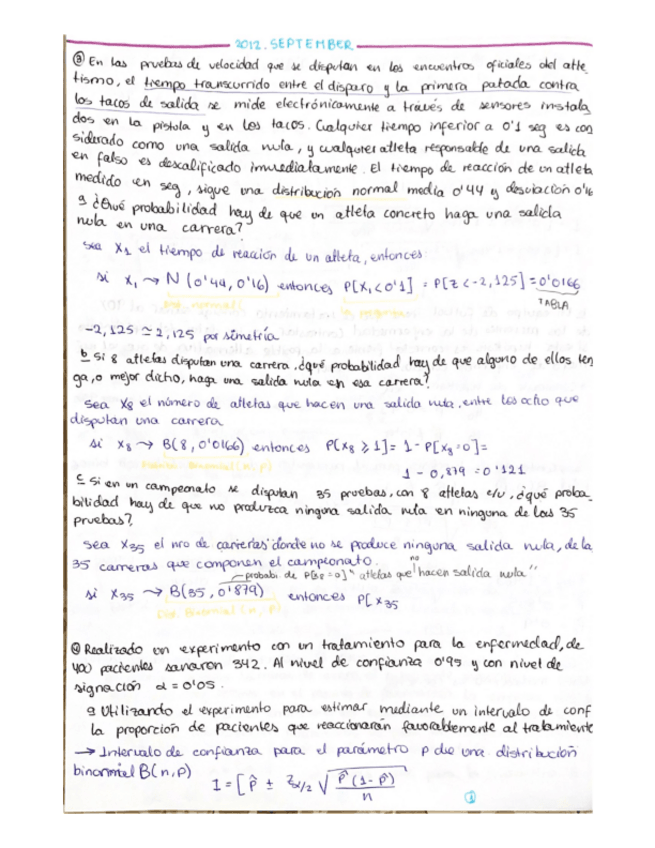 2012. SEPTEMBER
③ En las pruebas de velocidad que se disputan en los encuentros oficiales del atle
tismo, el tiempo transcurrido entre el disparo y la primera patada contra
los tacos de salida se mide electrónicamente a través de sensores instala
dos en la pistola y en los tacos. Cualquier tiempo inferior a 0'1 seg es con
siderado como una salida nula, y cualquier atleta responsable de una salida
en falso es descalificado inmediatamente. El tiempo de reacción de un atleta
medido en seg, sigue una distribución normal media 0'44 y desviación 0'16
a ¿Qué probabilidad hay de que un atleta concreto haga una salida
nula en una carrera?
sea X₁ el tiempo de reacción de un atleta, entonces:
si X₁ → N (0'44, 0'16) entonces P[X₁ < 0'1] = P[Z < -2,125] = 0'0166
TABLA
-2,125 ≃ 2,125 por simetría
b Si 8 atletas disputan una carrera, ¿qué probabilidad hay de que alguno de ellos ten
ga, o mejor dicho, haga una salida nula en esa carrera?
sea X8 el número de atletas que hacen una salida nula, entre los ocho que
disputan una carrera
si X8 → B(8, 0'0166) entonces P[X8 ⩾ 1] = 1 - P[X8 = 0] =
1 - 0,879 = 0'121
Binomial (n, p)
c Si en un campeonato se disputan 35 pruebas, con 8 atletas c/u, ¿qué proba_
bilidad hay de que no produzca ninguna salida nula en ninguna de las 35
pruebas?
sea X35 el nro de carreras donde no se produce ninguna salida nula, de la
35 carreras que componen el campeonato.
probabi. de P[X8 = 0] "atletas que no hacen salida nula"
si X35 → B(35, 0'879) entonces P[X35
Dis. Binomial (n, p)
④ Realizado un experimento con un tratamiento para la enfermedad, de
400 pacientes sanaron 342. Al nivel de confianza 0'95 y con nivel de
signación α = 0'05.
a Utilizando el experimento para estimar mediante un intervalo de conf
la proporción de pacientes que reaccionarán favorablemente al tratamiento
→ Intervalo de confianza para el parámetro p de una distribución
binomial B(n, p)
I = [ p̂ ± Zα/2 √ p̂ (1 - p̂) / n
①